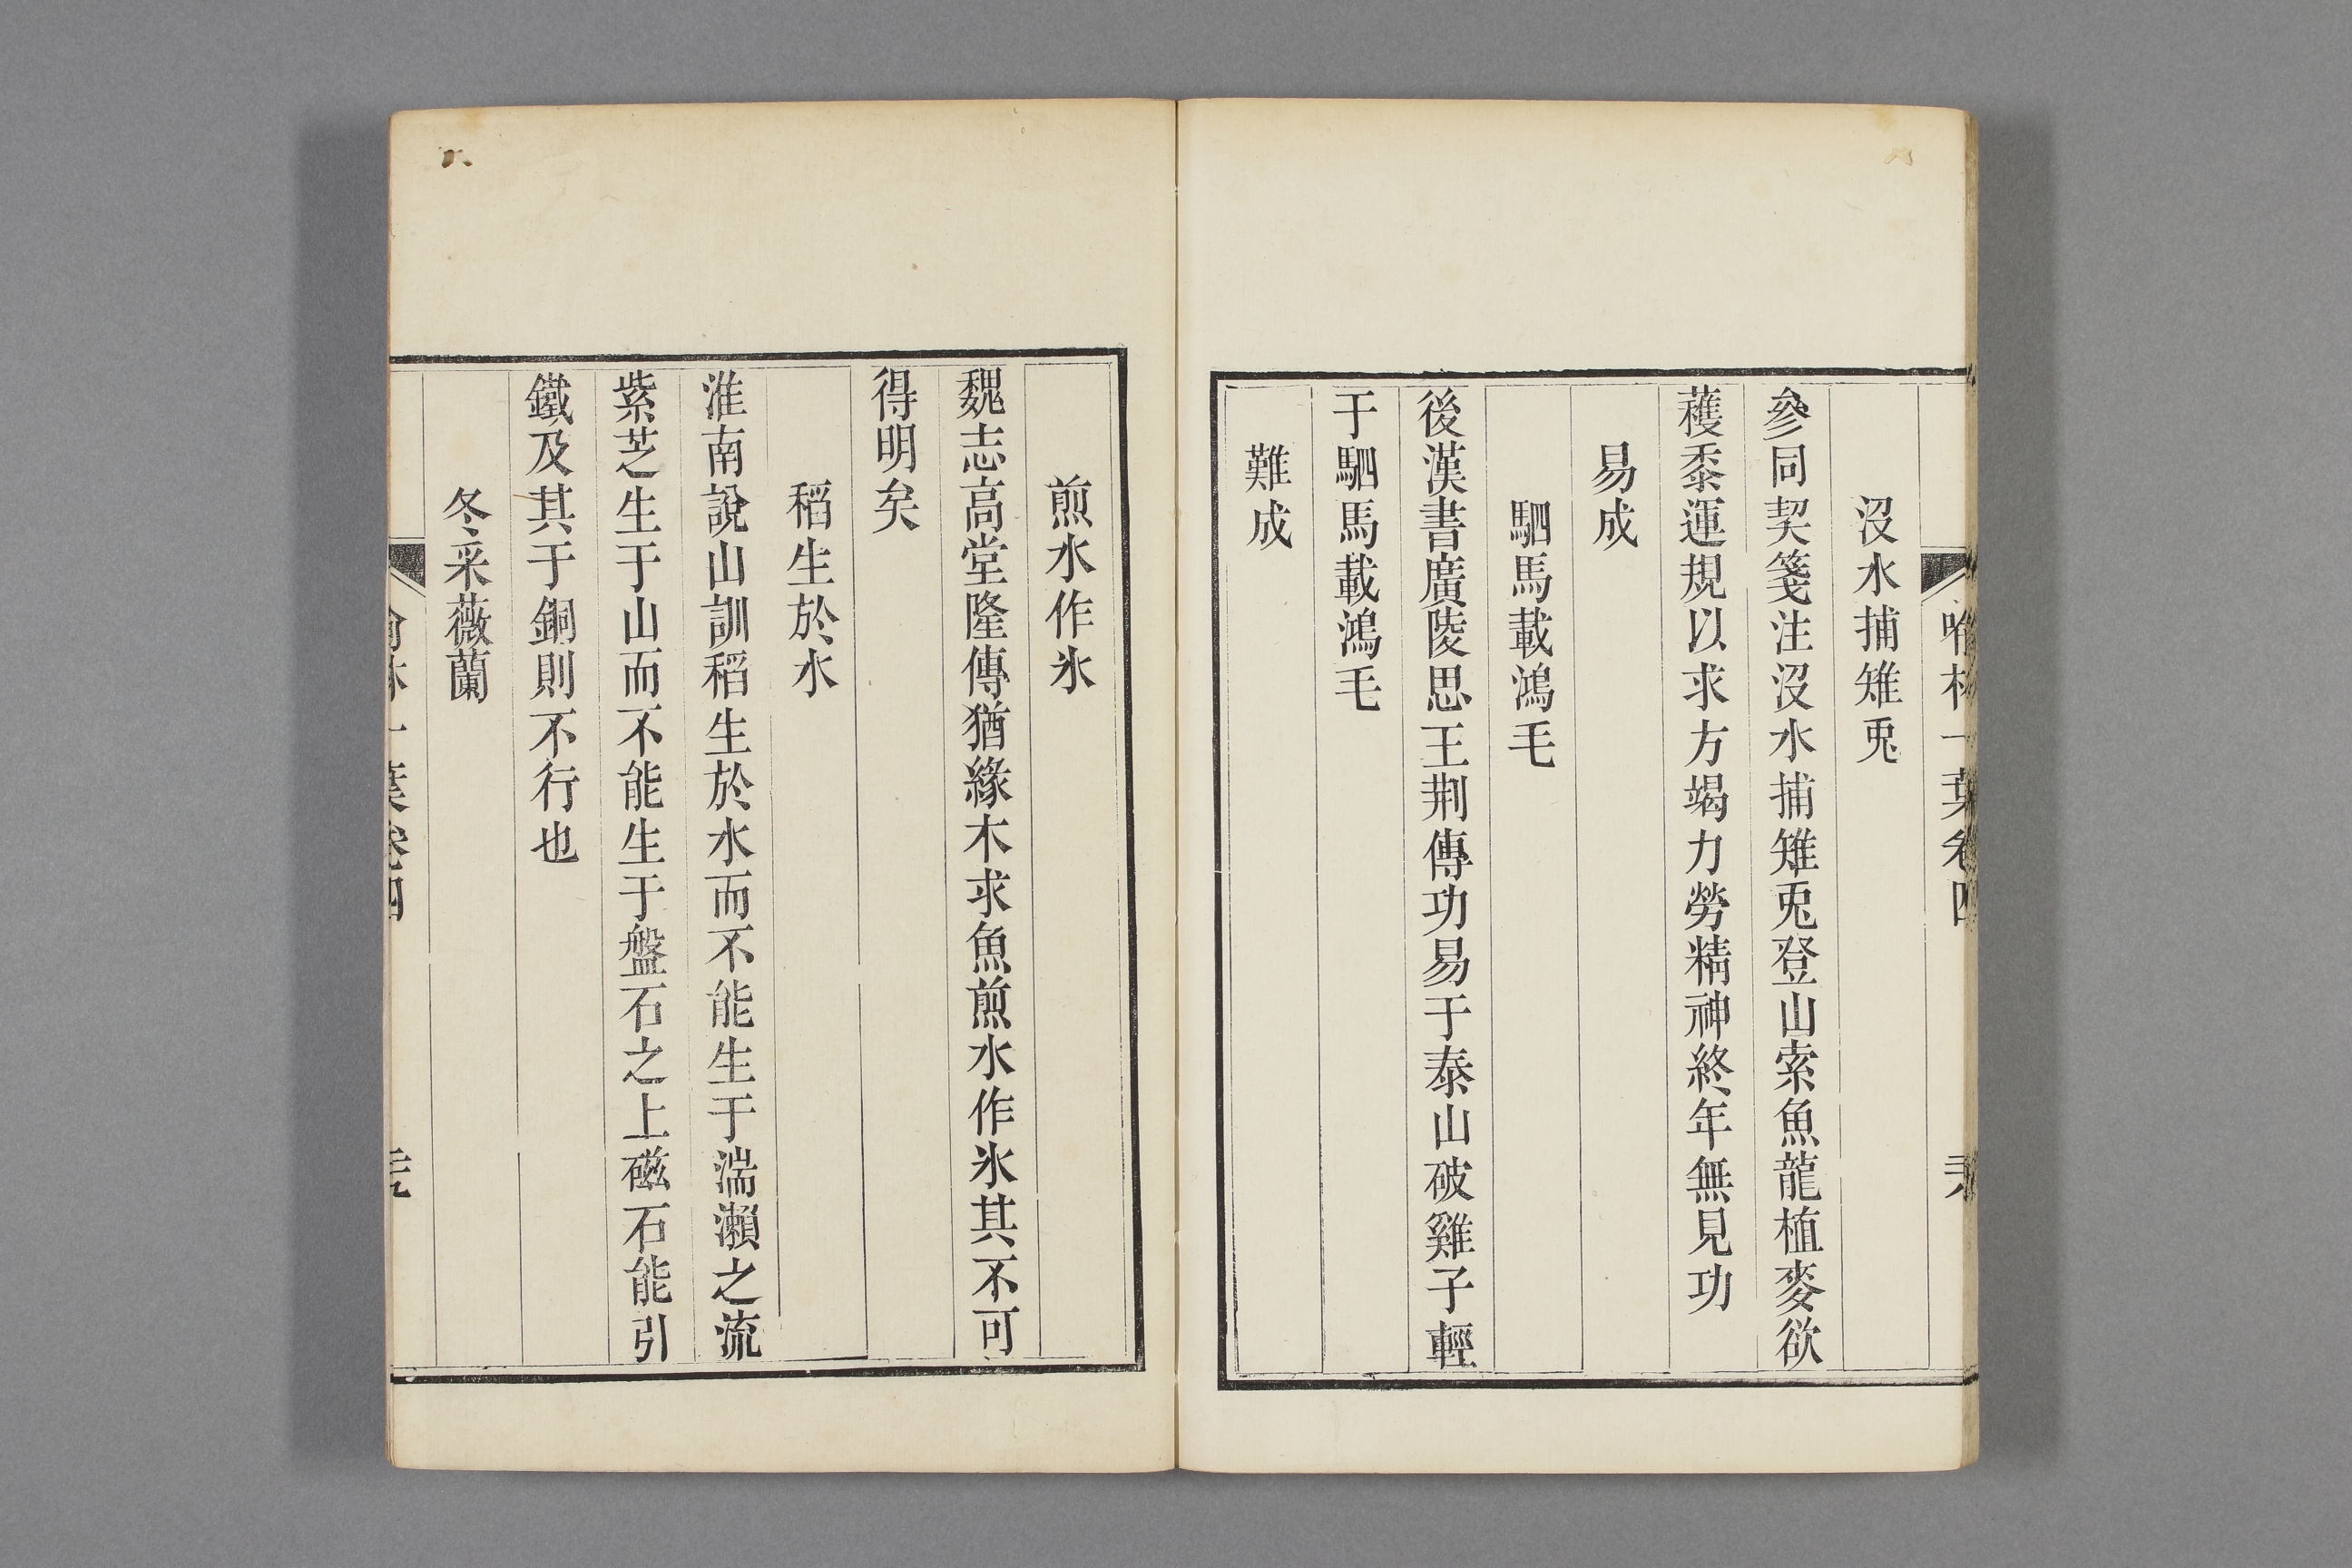 沒水捕雉兎
參同契箋注沒水捕雉兎登山索魚龍植麥欲
穫黍運規以求方竭力勞精神終年無見功
易成
駟馬載鴻毛
後漢書廣陵思王荆傳功易于泰山破雞子輕
于駟馬載鴻毛
難成
煎水作氷
魏志高堂隆傳猶緣木求魚煎水作氷其不可
得明矣
稻生於水
淮南說山訓稻生於水而不能生于湍瀨之流
紫芝生于山而不能生于盤石之上磁石能引
鐵及其于銅則不行也
冬采薇蘭